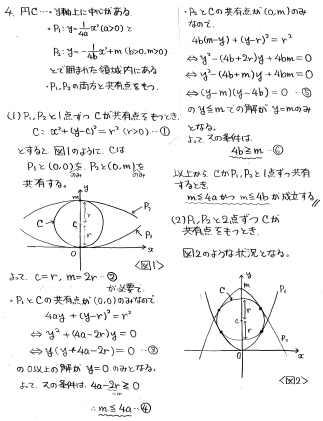 4. 円C … y軸上に中心がある
・P₁: y=1/4a x² (a>0) と
P₂: y=-1/4b x²+m (b>0, m>0)
とで囲まれた領域内にある
・P₁, P₂の両方と共有点をもつ.
(1) P₁, P₂と1点ずつCが共有点をもつとき,
C: x²+(y-c)²=r² (r>0) …①
とすると 図1のように, Cは
P₁と(0,0)のみを, P₂と(0,m)のみを
共有する。
y
m
P₂
r
C
c
r
P₁
O
x
<図1>
よって, c=r, m=2r …②
が必要で.
・P₁とCの共有点が(0,0)のみなので
4ay+(y-r)²=r²
⇔ y²+(4a-2r)y=0
⇔ y(y+4a-2r)=0 …③
の0以上の解が y=0のみとなる。
よって, その条件は. 4a-2r≧0
=m
∴ m≦4a …④
・P₂とCの共有点が(0,m)のみ
なので.
4b(m-y)+(y-r)²=r²
⇔ y²-(4b+2r)y+4bm=0
⇔ y²-(4b+m)y+4bm=0
⇔ (y-m)(y-4b)=0 …⑤
のy≦mでの解がy=mのみ
となる.
よって, その条件は.
4b≧m …⑥
以上から CがP₁, P₂と1点ずつ共有
するとき
m≦4aかつm≦4bが成立する
(2) P₁, P₂と2点ずつCが
共有点をもつとき,
図2のような状況となる。
y
m
C
P₁
r
c
r
P₂
O
x
<図2>